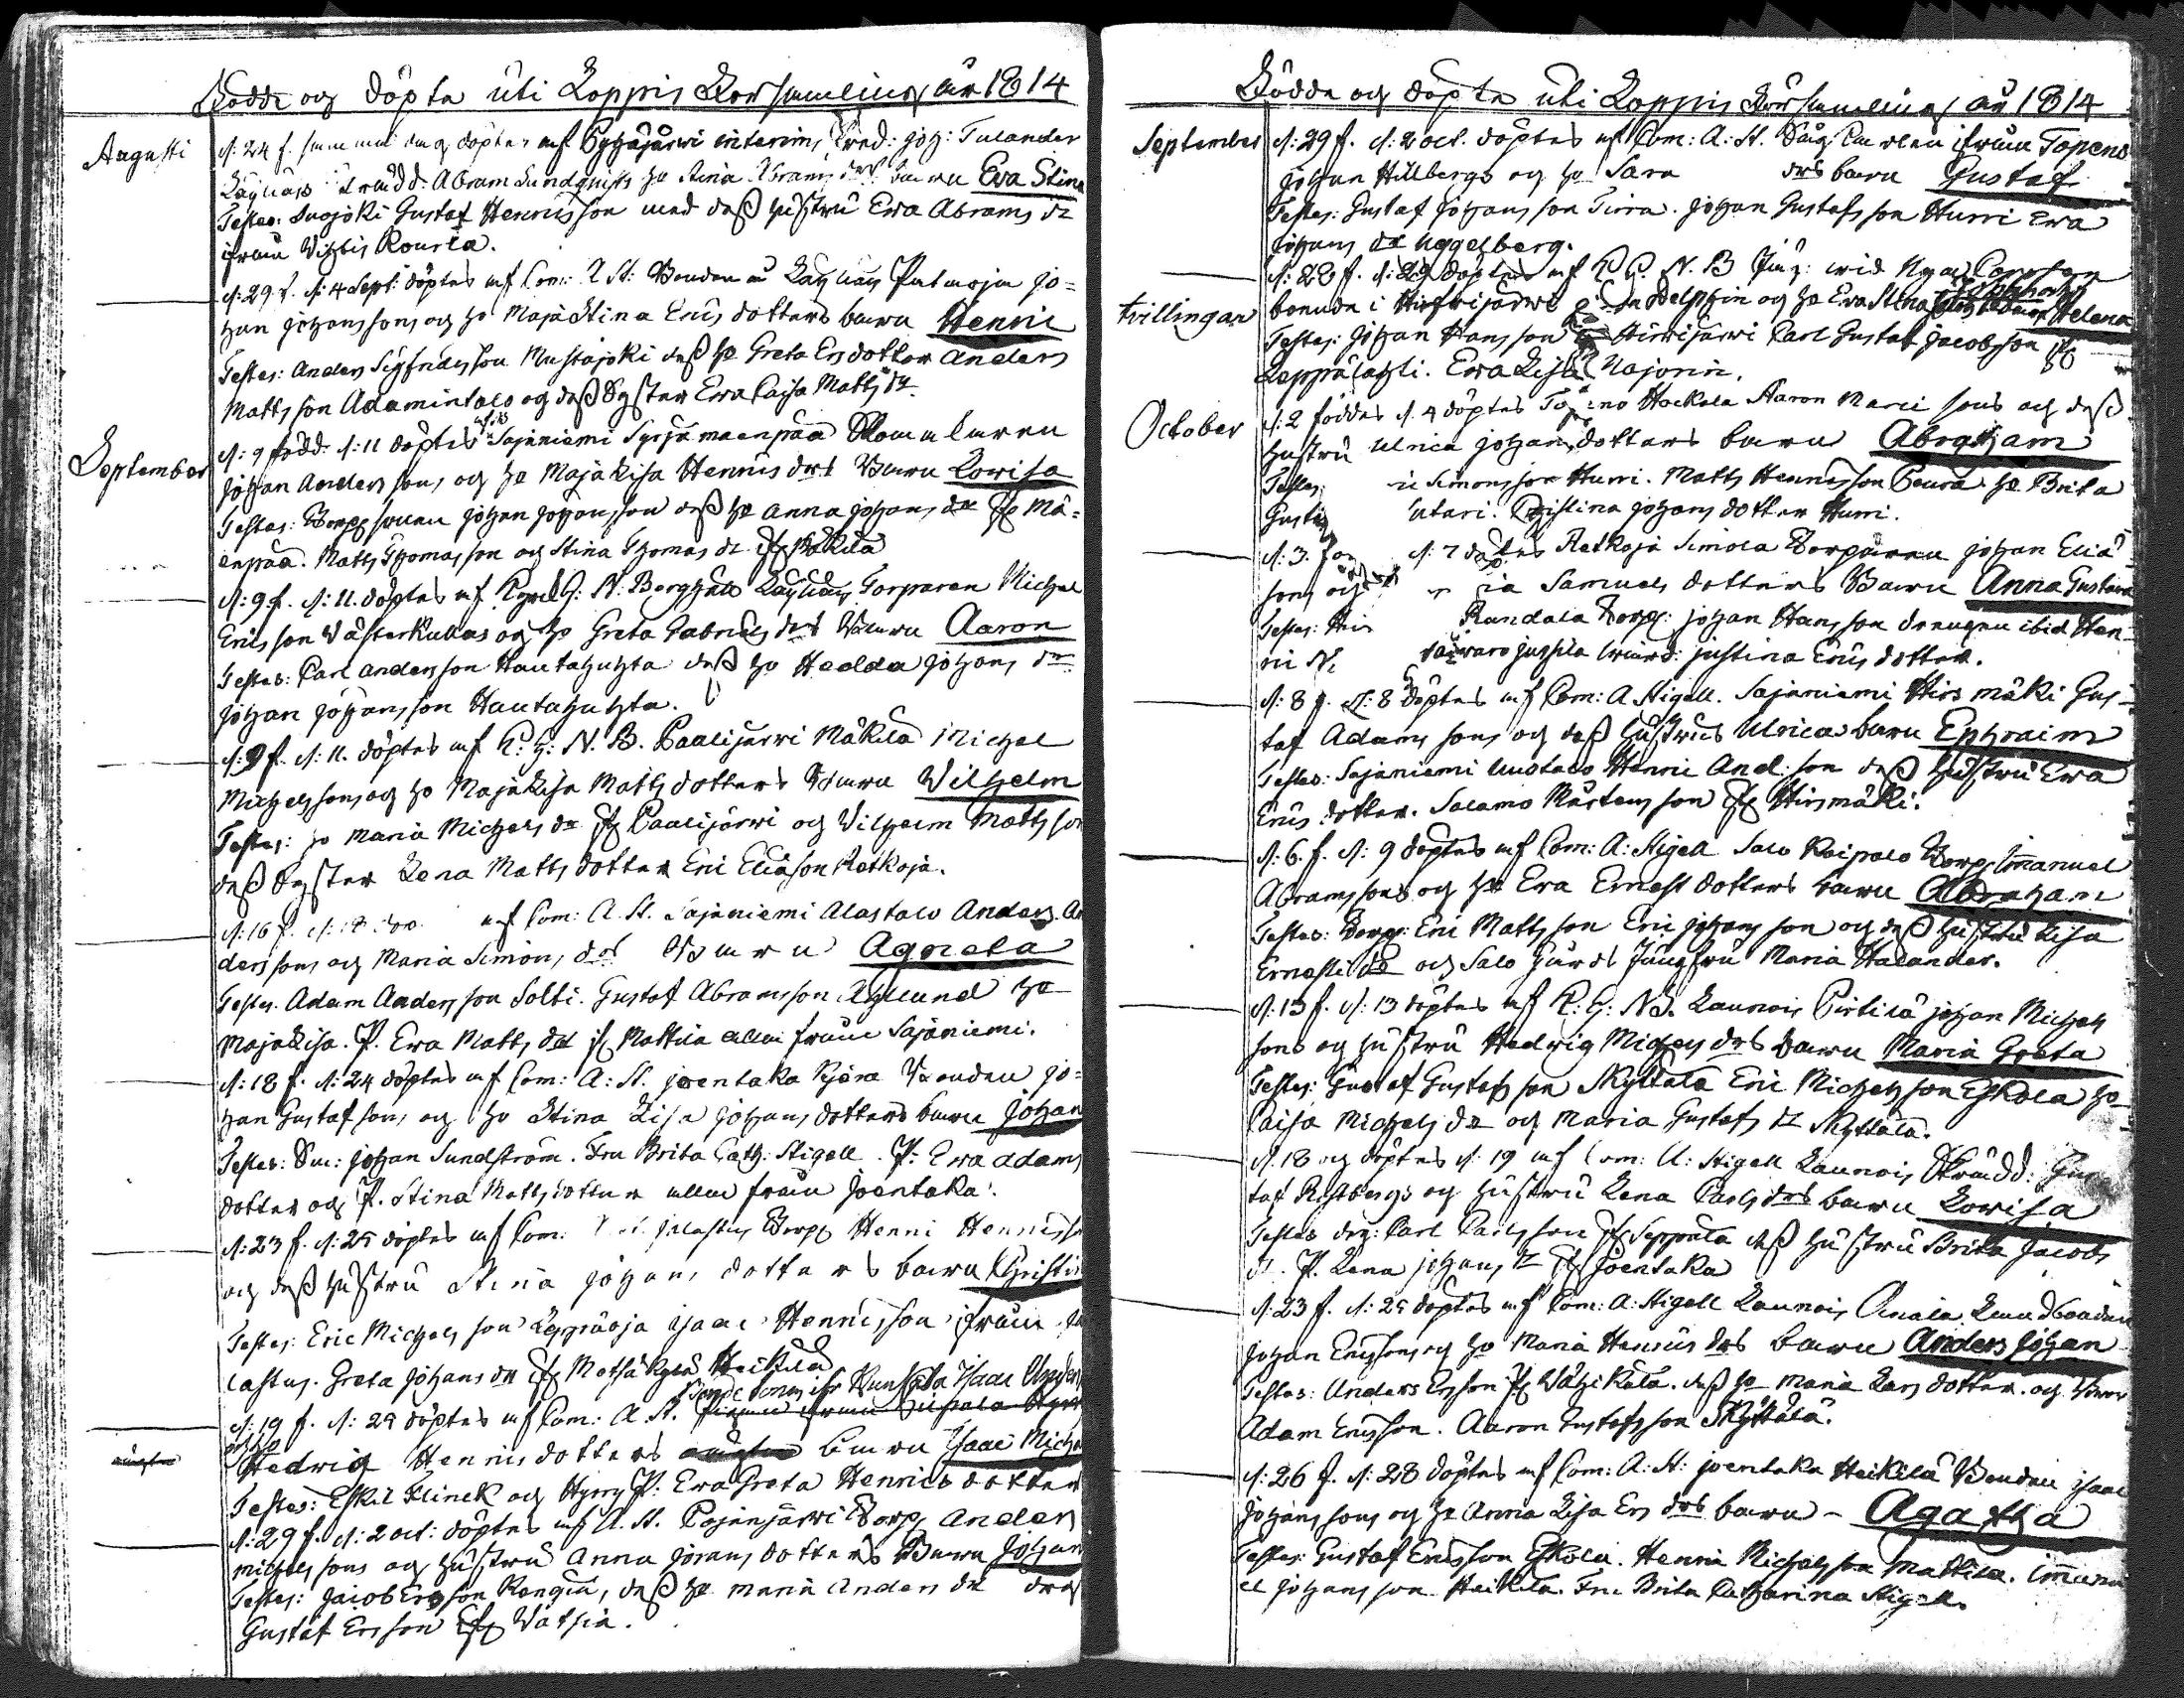 Födde och döpta uti Loppis Församling år 1814
Augusti
d: 24 f. samma dag döptes af Pyhäjärvi interims Pred: Joh: Tulander
Läyliäis Skrädd: Abram Lundqvists h:o Stina Abrams drs barn Eva Stina
Testes: Suojoki Gustaf Henricsson med dess hustru Eva Abrams dr
ifrån Vichtis Rourla.
d: 29. f. d: 4 Sept: döptes af Com: A St: Bonden Läyliäis Patmoja Jo=
han Johanssons och h:o Maja Stina Erics dotters barn Henric
Testes: Anders Sigfridsson Mustajoki dess h:o Greta Ersdotter Anders
Mattsson Adamintalo och dess Syster Eva Caisa Matts dr
September
d: 9 född d: 11 döptes Sajaniemi Syrjä maenpää Skomakaren
Johan Anderssons och h:o Maja Lisa Henrics drs Barn Lovisa
Testes: Torpparen Johan Johansson dess h:o Anna Johans dr if: Mä=
enpää. Matts Thomasson och Stina Thomas dr if: Mäkilä
d: 9 f. d: 11. döptes af N: Berghäll Läyliäis Torparen Michel
Ericsson Västerkullas och h:o Greta Gabriels drs Barn Aaron
Testes: Carl Andersson Hautahuhta dess h:o Hedda Johans dr
Johan Johansson Hautahuhta.
d: 9 f. d: 11. döptes af C: G: N. B. Paalijärvi Mäkilä Michel
Michelssons och h:o Maja Lisa Matts dotters Barn Vilhelm
Testes: h:o Maria Michels dr if: Paalijärvi och Vilhelm Mattsson
dess Syster Lena Matts dotter Eric Eliasson Retkoja.
d: 16 f. d: 18 döp. af Com: A. St. Sajaniemi Alastalo Anders An
derssons och Maria Simons drs Barn Agneta
Testes. Adam Andersson Solti. Gustaf Abramsson Aglund h:o
Maja Lisa. P. Eva Matts dr if: Mattila alla från Sajaniemi.
d: 18 f. d: 24 döptes af Com: A: St. Joentaka Kjöra Bonden Jo=
han Gustafsons och h:o Stina Lisa Johans dotters barn Johan
Testes: Johan Sundström. Fru Brita Cath: Stigell. P: Eva Adams
dotter och P. Stina Matts dotter alla från Joentaka.
d: 23 f. d: 25 döptes af Com: Torp: Henric Henrics
och dess hustru Stina Johans dotters barn Christi
Testes: Eric Michelsson Leppäoja Isaac Henricsson ifrån
lastus. Greta Johans dr if: Metsäkylä Heikilä
d: 19 f. d: 25 döptes af Com: A. St. Isaac
och h:o
Hedvig Henricsdotters barn Isaac Micha
Testes: Eskil Flinck och P: Eva Greta Henrics dotter
d: 29 f. d: 2 oct: döptes af A. St. Pajanjärvi Torp: Anders
Michelssons och hustru Anna Jörans dotters Barn Johan
Testes: Jacob Ersson Kangais, dess h:o Maria Anders dr
Gustaf Ersson if: Vätsiä.
Födda och döpta uti Loppis Församling år 1814
September
d: 29 f. d: 2 oct. döptes af Com: A. St. ifrån Topeno
Johan Hillbergs och h:o Sara drs barn Gustaf
Testes: Gustaf Johansson Tirra. Johan Gustafsson Hurri Eva
Johans dr Uggelberg.
tvillingar
d: 28 f. d: 29 döptes af C G. N. B wid Nya
boende i Hirvijärvi Delphin och h:o Eva Stina Helena
Testes: Johan Hansson Hirvijärvi Carl Gustaf Jacobsson if:
Leppälahti. Eva Lisa Majorin.
October
d: 2 föddes d. 4 döptes Topeno Hockola Aaron Marci sons och dess
hustru Ulrica Johans dotters barn Abraham
Testes: Simonsson Hurri. Matts Henricsson Peura h:o Brita
Gusta Christina Johans dotter Hurri.
d: 3. d: 7 döptes Retkoja Simola Torparen Johan Elia
sons och Samuels dotters Barn Anna Gustava
Testes: Rundala Torp: Johan Hansson drengen ibid Hen
ric Jussila Justina Erics dotter.
d: 8 f. d: 8 döptes af Com: A Stigell. Sajaniemi Hirsmäki Gus=
taf Adams sons och dess hustrus Ulricas barn Ephraim
Testes: Sajaniemi Uustalo Henric And:son dess hustru Eva
Erics dotter. Salamo Mårtensson if: Hirsmäki.
d: 6. f. d: 9 döptes af Com: A: Stigell Salo Raipalo Torp: Immanuel
Abramssons och h:o Eva Ernest dotters barn Abraham
Testes: Torp: Eric Mattsson Eric Johansson och dess hustru Lisa
Ernests dr och Salo Gårds Jungfru Maria Halander.
d. 13 f. d: 13 döptes af C: G: NB. Launois Pirtilä Johan Michels
sons och hustru Hedvig Michels drs barn Maria Greta
Testes: Gustaf Gustafsson Skyttälä Eric Michelsson Eskola h:o
Caisa Michels dr och Maria Gustafs dr Skyttälä.
d. 18 och döptes d: 19 af Com: A: Stigell Launois Skrädd: Gus
taf Ristbergs och hustru Lena Carls drs barn Lovisa
Testes drg: Carl Carlsson if: Seppälä dess hustru Brita Jacobs
d. P. Lena Johans dr if: Joentaka
d: 23 f. d: 25 döptes af Com: A: Stigell Launois Anala Landbonden
Johan Ericssons och h:o Maria Henrics drs barn Anders Johan
Testes: Anders Ersson if: Vähikälä. dess h:o Maria Lars dotter. och
Adam Ericsson. Aaron Gustafsson Skyttälä.
d: 26 f. d: 28 döptes af Com: A: St: Joentaka Heikilä Bonden Isaac
Johanssons och h:o Anna Lisa Ers drs barn - Agatha
Testes: Gustaf Ericsson Eskola. Henric Michelsson Mattila. Immanu
el Johansson Heikilä. Fru Brita Catharina Stigell.